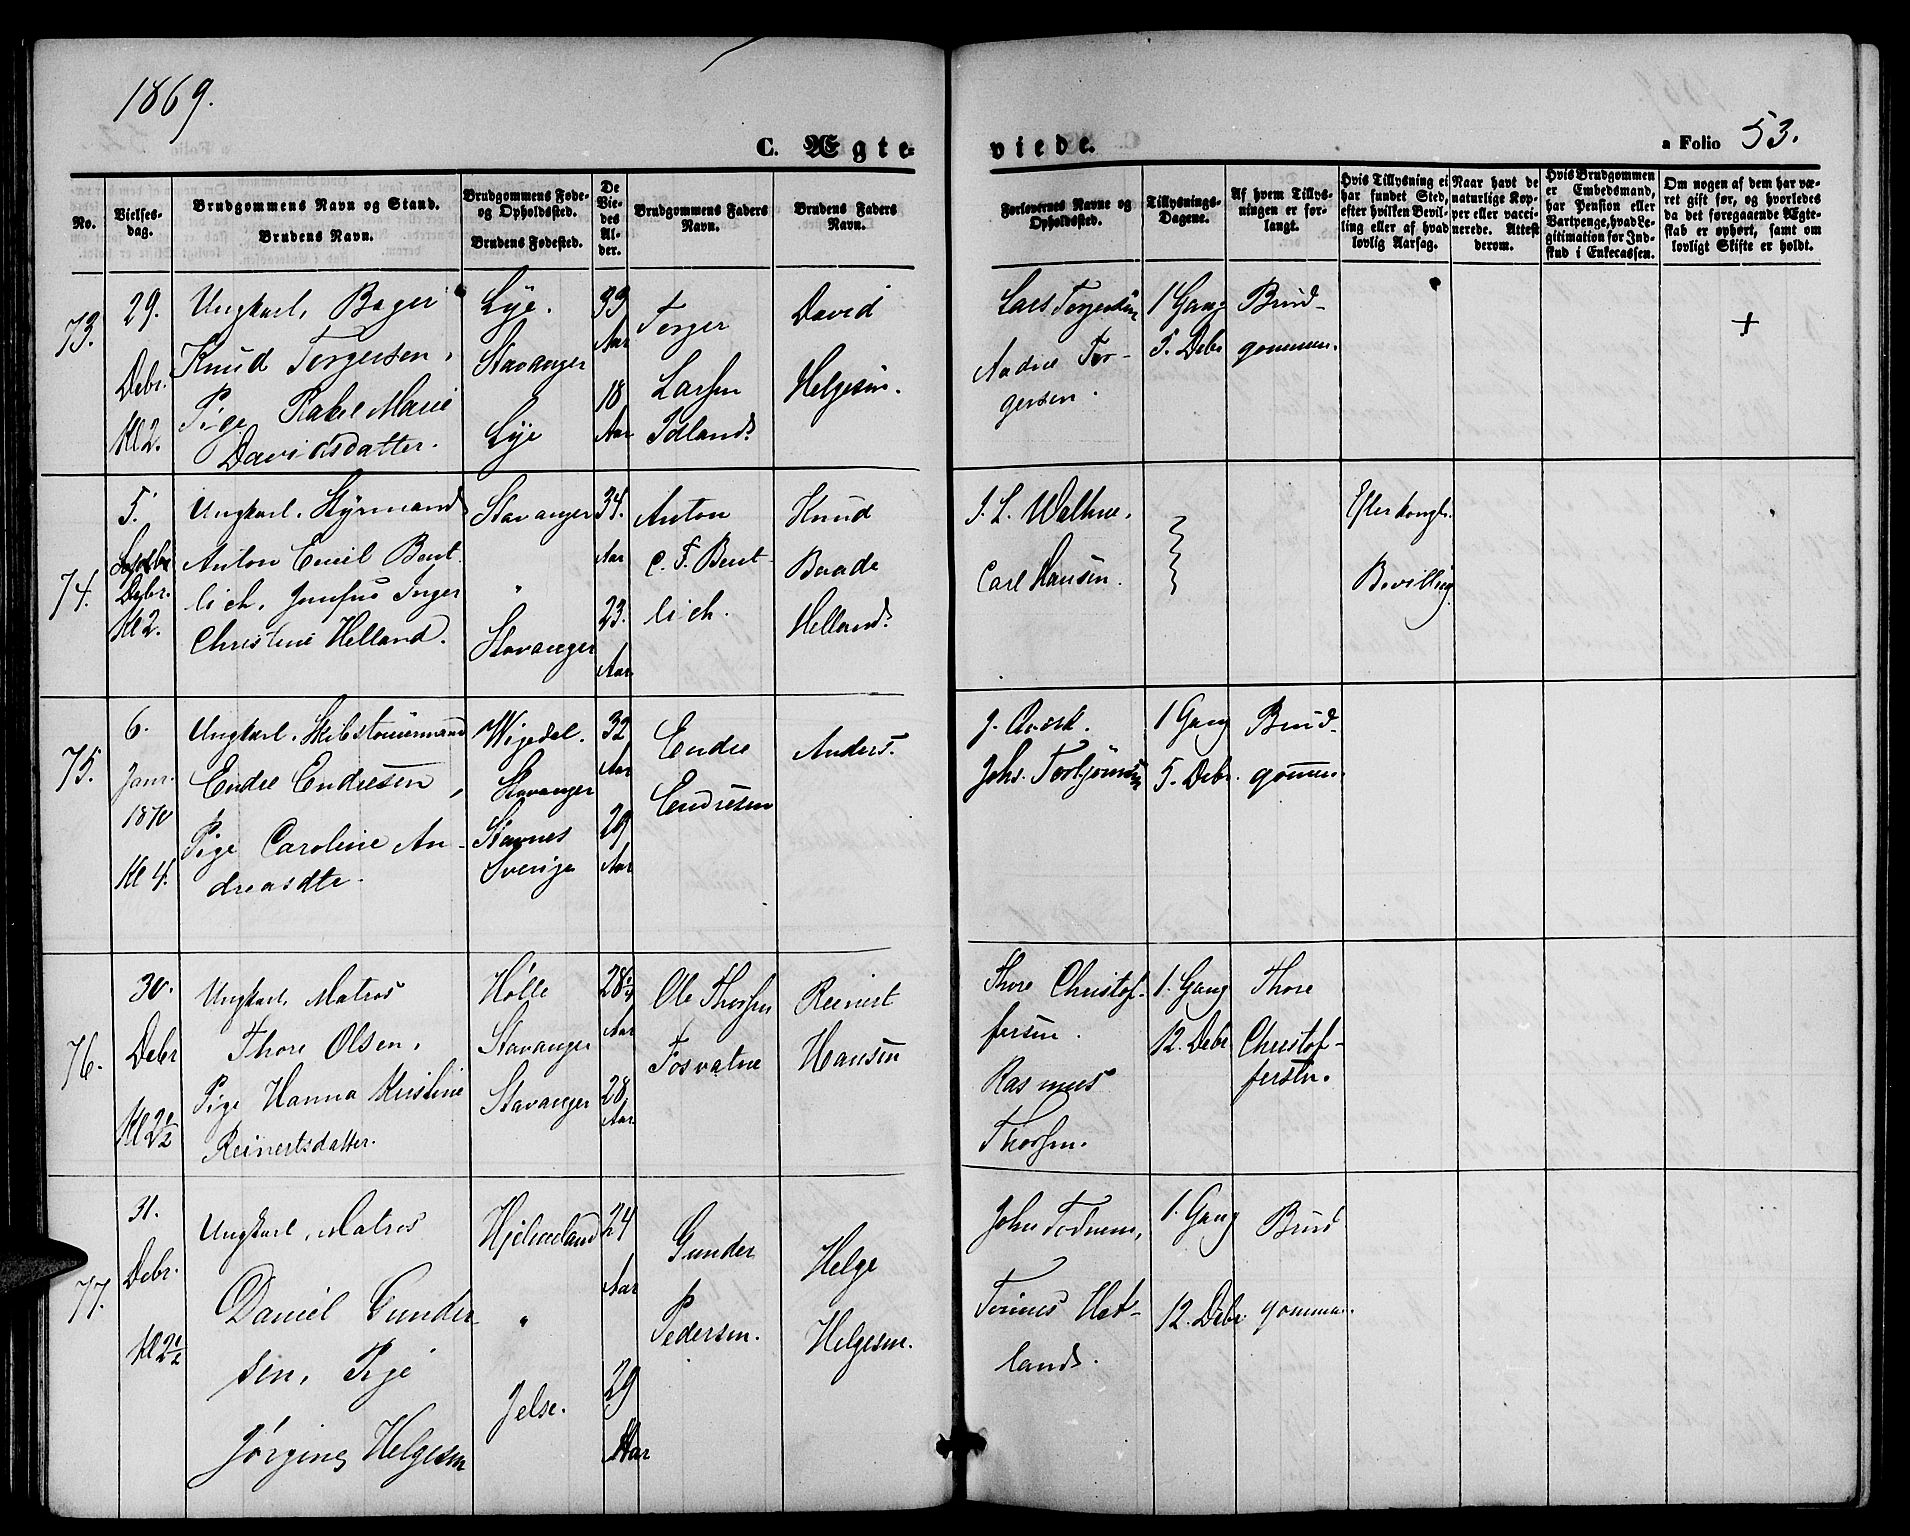 1869.
C. Ægteviede.
a Folio 53.
No.
Vielsesdag.
Brudgommens Navn og Stand.
Brudens Navn.
Brudgommens Føde- og Opholdssted.
Brudens Fødested.
De Viedes Alder.
Brudgommens Faders Navn.
Brudens Faders Navn.
Forlovernes Navne og Opholdssted.
Tillysnings-Dagene.
Af hvem Tillysningen er forlangt.
Hvis Tillysning ei har fundet Sted, efter hvilken Bevilling eller af hvad lovlig Aarsag.
Naar havt de naturlige Kopper eller vaccinerede. Attest derom.
Hvis Brudgommen er Embedsmand, har Pension eller Vartpenge, hvad Legitimation for Indskud i Enkecassen.
Om nogen af dem har været gift før, og hvorledes da det foregaaende Ægteskab er ophørt, samt om lovligt Skifte er holdt.
73.
29.
Debr.
Kl 2.
Ungkarl, Bager
Knud Torgersen,
Pige Rakel Marie
Davidsdatter.
Lye.
Stavanger
Lye
33
Aar
18
Aar
Torger
Larsen
Idland.
David
Helgesen.
Lars Torgersen
Andre Torgersen.
1 Gang
5. Debr
Brudgommen.
+
74.
5.
Debr.
Kl 2.
Ungkarl, Styrmand
Anton Emil Bentlich, Jomfrue Inger
Christine Helland.
Stavanger
"
Stavanger
34.
Aar
23.
Aar
Anton
C. F. Bentlich.
Knud
Baade
Helland.
J. L. Walhne.
Carl Hansen.
Efter kongl.
Bevilling.
75.
6.
Janr.
1870
Kl 4.
Ungkarl, Skibstømmermand
Endre Endresen,
Pige Caroline Andreasdtr.
Wigedal.
Stavanger
Stavnes
Sverige
32
Aar
29
Aar
Endre
Endresen
Anders.
J. Qværk.
Johs. Torbjørnsen
1 Gang
5. Debr.
Brudgommen.
76.
30.
Debr
Kl 2½
Ungkarl, Matros
Thore Olsen,
Pige Hanna Kristine
Reinertsdatter.
Hølle
Stavanger
Stavanger
28
Aar
28
Aar
Ole Thorsen
Fosvatne
Reinert
Hansen
Thore Christoffersen.
Rasmus
Thorsen.
1. Gang
12. Debr
Thore
Christoffersen.
77.
31.
Debr.
Kl 2½
Ungkarl, Matros
Daniel Gundersen, Pige
Jørgine Helgesen
Hjelmeland
"
Jelse.
24
Aar
29
Aar
Gunder
Pedersen.
Helge
Helgesen.
John Todnem,
Tønnes Hetland.
1. Gang
12. Debr
Brudgommen.